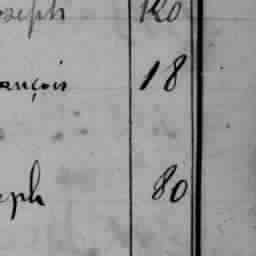 oseph 120
ançois 18
eph 80